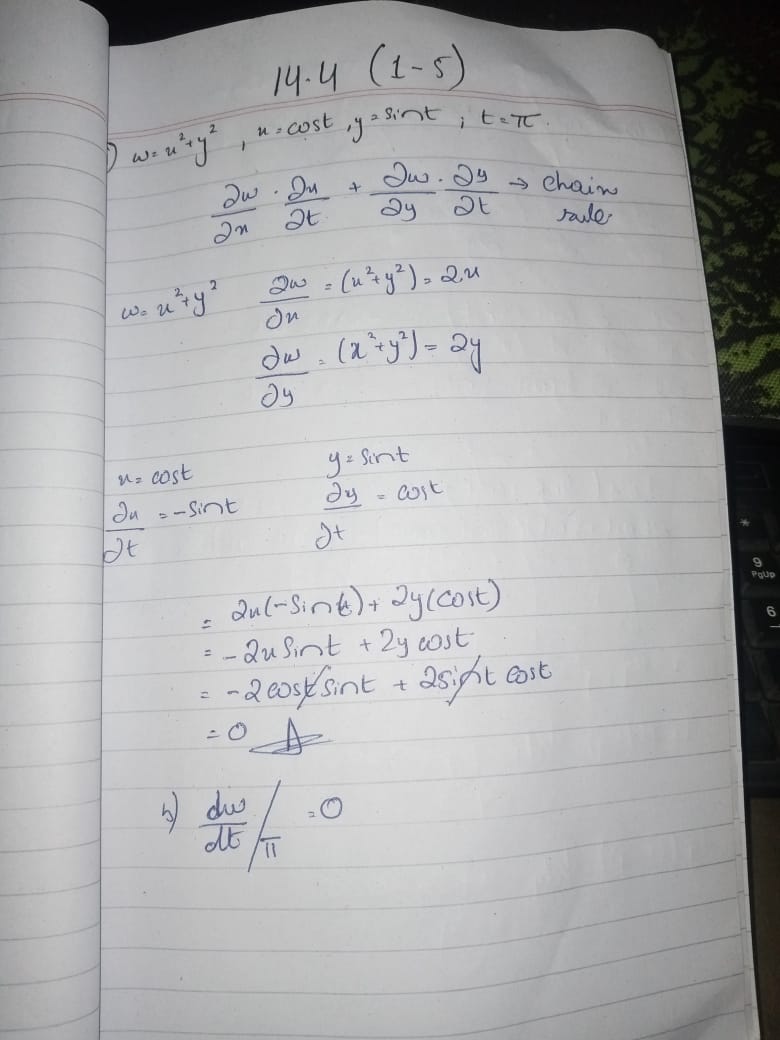 14.4 (1-5)
) w=x²+y², x=cost, y=sint ; t=π.
∂w/∂x · ∂x/∂t + ∂w/∂y · ∂y/∂t → chain rule
w=x²+y² ∂w/∂x = (x²+y²) = 2x
∂w/∂y = (x²+y²) = 2y
x=cost y=sint
∂x/∂t = -sint ∂y/∂t = cost
= 2x(-sint) + 2y(cost)
= -2x sint + 2y cost
= -2cost sint + 2sint cost
= 0 A
b) dw/dt / π = 0
*
9
PgUp
6